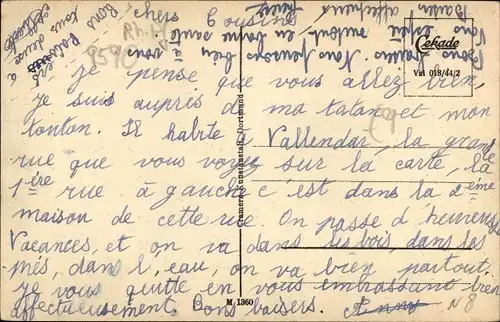 chers Cousins
je pense que vous allez bien,
je suis auprès de ma tatan et mon
tonton. Il habite a Vallendar, la grande
rue que vous voyez sur la carte, la
1ère rue à gauche c'est dans la 2ème
maison de cette rue On passe d'heureuses
Vacances, et on va dans les bois, dans les
prés, dans l'eau, on va bien partout.
je vous quitte en vous embrassant bien
affectueusement. Bons baisers.
N 8
Bons
vous
Nous pensons bien
à vous
en bonne santé
Baisers
affectueux
tous deux
9590
Cekade
Val 018/44/2
Cramers Kunstanstalt, Dortmund
M 1360